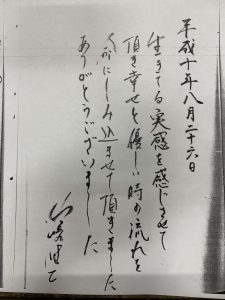 平成十年八月二十六日
生きてる実感を感じさせて
頂き幸せと優しい時の流れを
心にしみ込ませて頂きました
ありがとうございました